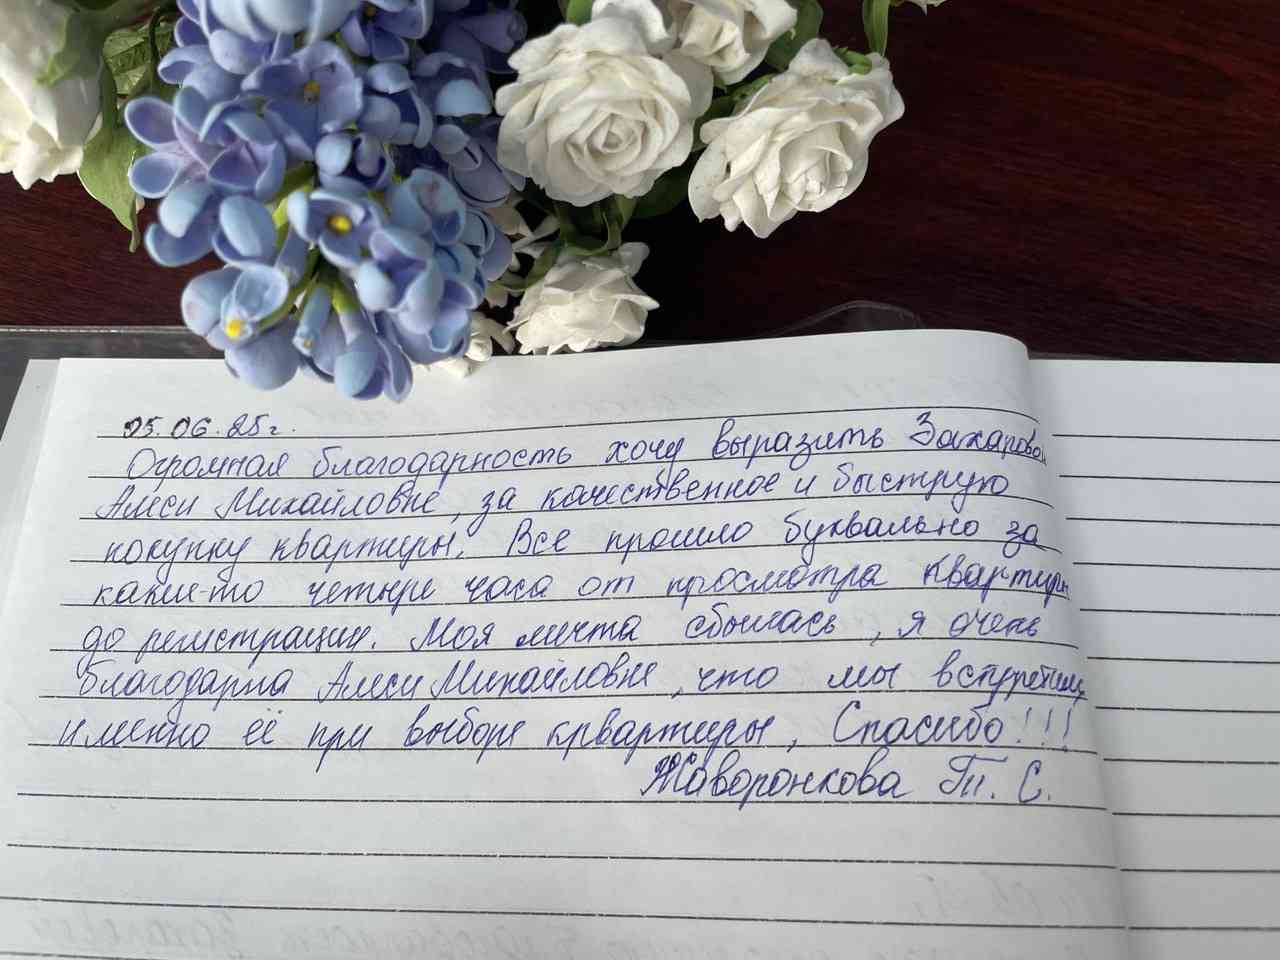 05.06.25г.
Огромная благодарность хочу выразить Захаровой
Алеси Михайловне, за качественное и быструю
покупку квартиры. Все прошло буквально за
какие-то четыре часа от просмотра квартиры
до регистрации. Моя мечта сбылась, я очень
благодарна Алеси Михайловне, что мы встретили
именно её при выборе крвартиры, Спасибо!!!
Жаворонкова Т. С.